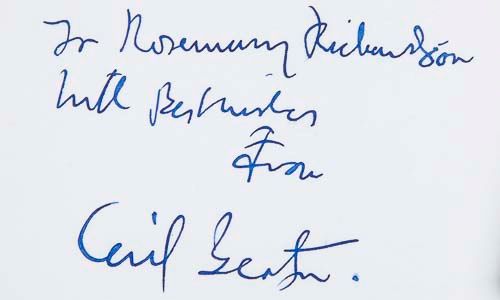 To Rosemary Richardson
With Best wishes
From
Cecil Beaton.